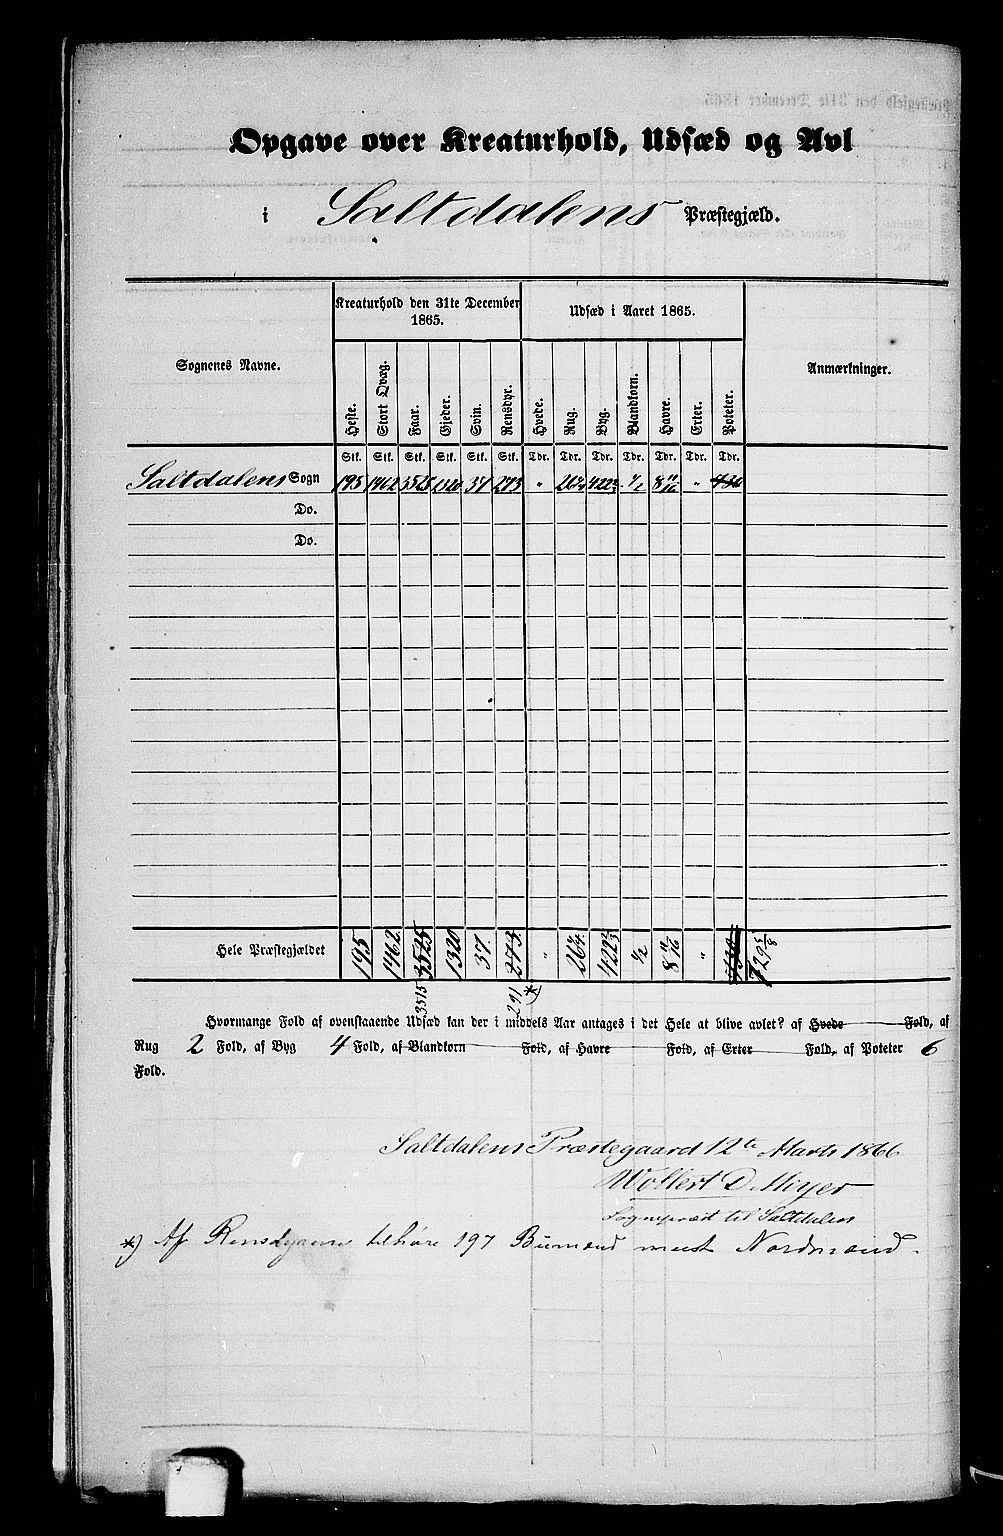 Opgave over Kreaturhold, Udsæd og Avl
i Saltdalens Præstegjæld.
Sognenes Navne.
Kreaturhold den 31te December
1865.
Udsæd i Aaret 1865.
Anmærkninger.
Heste. Stort Qvæg. Faar. Gjeder. Svin. Rensdyr. Hvede. Rug. Byg. Blandkorn. Havre. Erter. Poteter.
Stk. Stk. Stk. Stk. Stk. Stk. Tdr. Tdr. Tdr. Tdr. Tdr. Tdr. Tdr.
Saltdalens Sogn 195 1462 3525 1320 37 273 " 26 2/4 422 2/3 1/2 8 11/16 " 730
Do.
Do.
Hele Præstegjældet 195 1462 3525 1320 37 273 " 26 2/4 422 2/3 1/2 8 11/16 " 730 729 5/8
3515 291 *)
Hvormange Fold af ovenstaaende Udsæd kan der i middels Aar antages i det Hele at blive avlet? af Hvede Fold, af
Rug 2 Fold, af Byg 4 Fold, af Blandkorn Fold, af Havre Fold, af Erter Fold, af Poteter 6
Fold.
Saltdalens Præstegaard 12te Marts 1866
Wollert D. Meyer
Sognepræst til Saltdalen
*) Af Rensdyrene tilhøre 197 Bumænd mest Nordmænd.